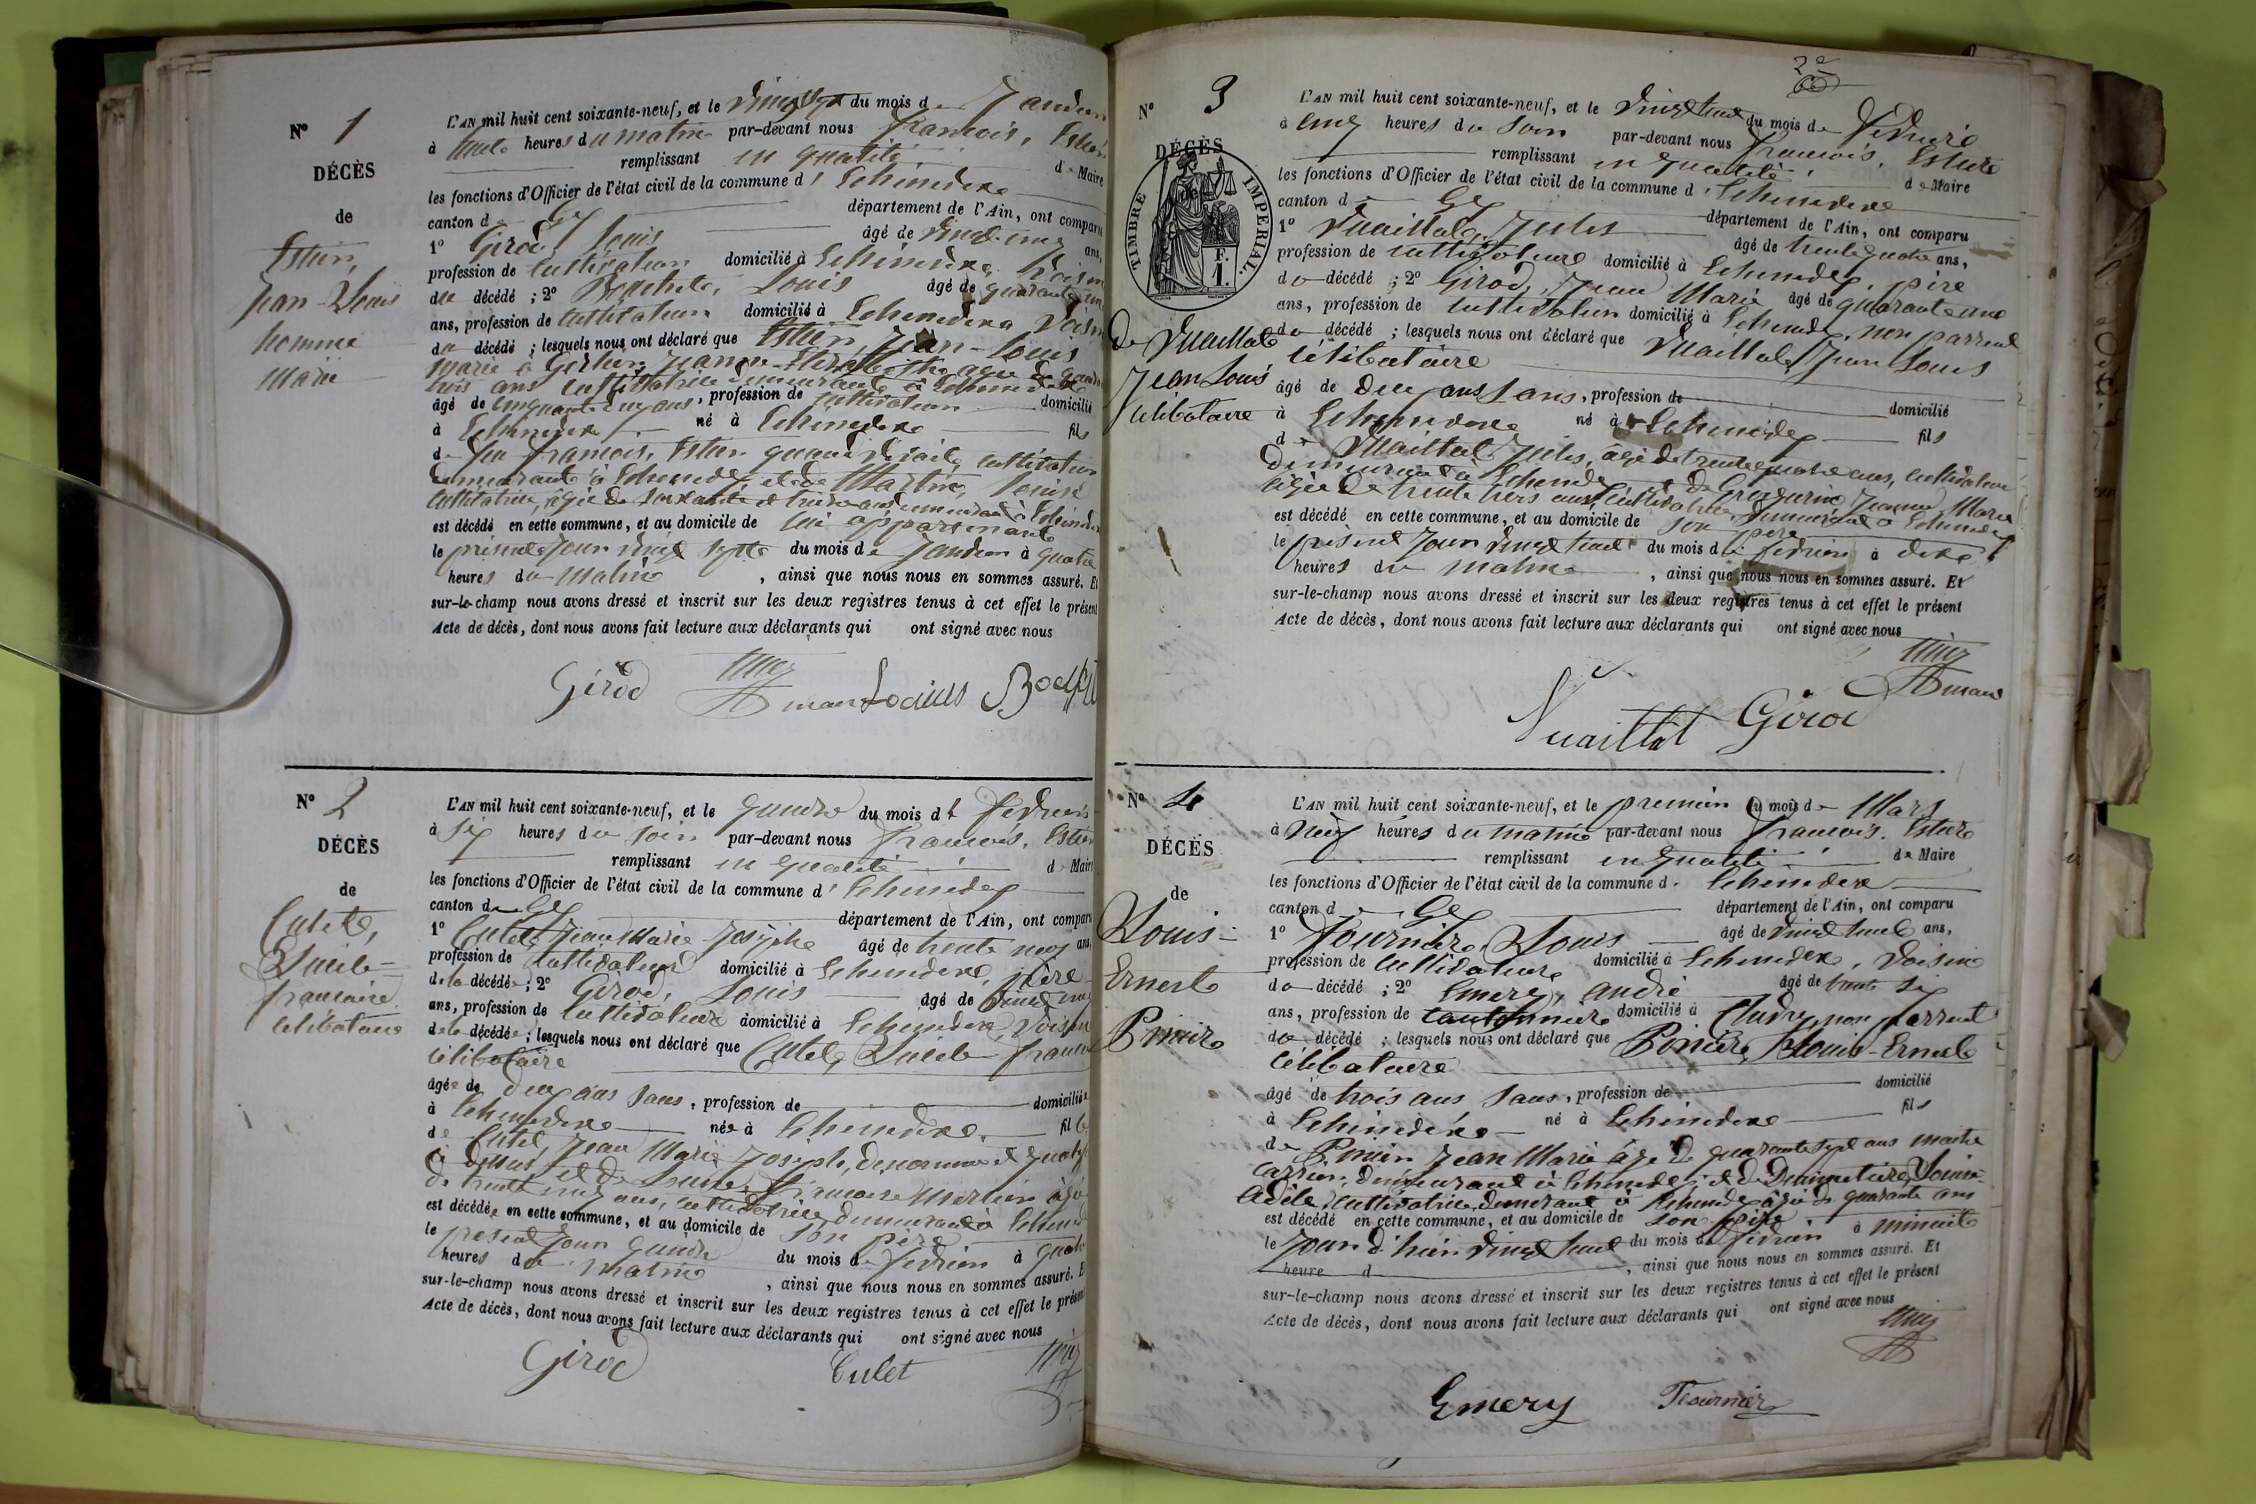 N° 1
DÉCÈS
de
Estur,
Jean-Louis
homme
Marié
L'AN mil huit cent soixante-neuf, et le vingt sept du mois de Janvier
à heures du matin par-devant nous François, Estur
remplissant en qualité de Maire
les fonctions d'Officier de l'état civil de la commune d' Echenevex
canton de Gex département de l'Ain, ont comparu
1° Girod Louis âgé de vingt-cinq ans,
profession de cultivateur domicilié à Echenevex, voisin
du décédé ; 2° Louis âgé de quarante un
ans, profession de cultivateur domicilié à Echenevex voisin
du décédé ; lesquels nous ont déclaré que Estur, Jean-Louis
marié à Jeanne-Elisabeth âgée de
trois ans cultivatrice demeurant à Echenevex
âgé de cinquante ans, profession de cultivateur domicilié
à Echenevex né à Echenevex fils
de feu François, Estur quand vivait, cultivateur
demeurant à Echenevex, et de Martin, Louise
cultivatrice, âgée de soixante et treize ans demeurant à Echenevex
est décédé en cette commune, et au domicile de lui appartenant
le présent jour vingt septe du mois de Janvier à quatre
heures du Matin , ainsi que nous nous en sommes assuré. Et
sur-le-champ nous avons dressé et inscrit sur les deux registres tenus à cet effet le présent
Acte de décès, dont nous avons fait lecture aux déclarants qui ont signé avec nous
Girod
N° 2
DÉCÈS
de
Cutet,
Lucile-
françoise
célibataire
L'AN mil huit cent soixante-neuf, et le quinze du mois de février
à six heures du soir par-devant nous François, Estur
remplissant en qualité de Maire
les fonctions d'Officier de l'état civil de la commune d' Echenevex
canton de Gex département de l'Ain, ont comparu
1° Cutet, Jean Marie Josephe âgé de trente neuf ans,
profession de cultivateur domicilié à Echenevex, père
de la décédée ; 2° Girod, Louis âgé de vingt cinq
ans, profession de cultivateur domicilié à Echenevex, voisin
de la décédée ; lesquels nous ont déclaré que Cutet, Lucile-
célibataire
âgée de deux ans Sans, profession de domiciliée
à Echenevex née à Echenevex fille
de Cutet, Jean Marie Joseph, dénommé et
ci dessus et de françoise
de trente cinq ans, cultivatrice demeurant à
est décédée en cette commune, et au domicile de son père
le présent jour quinze du mois de février à
heures du matin , ainsi que nous nous en sommes assuré. Et
sur-le-champ nous avons dressé et inscrit sur les deux registres tenus à cet effet le présent
Acte de décès, dont nous avons fait lecture aux déclarants qui ont signé avec nous
Girod Cutet
2e
N° 3
DÉCÈS
de
TIMBRE IMPÉRIAL.
F.
1.
de Vuaillat
Jean Louis
célibataire
L'AN mil huit cent soixante-neuf, et le vingt huit du mois de février
à cinq heures du soir par-devant nous François, Esture
remplissant en qualité de Maire
les fonctions d'Officier de l'état civil de la commune d' Echenevex
canton d Gex département de l'Ain, ont comparu
1° Vuaillat, Jules âgé de trente quatre ans,
profession de cultivateur domicilié à Echenevex, père
du décédé ; 2° Girod, Jean Marie âgé de quarante un
ans, profession de cultivateur domicilié à Echenevex, non parrent
du décédé ; lesquels nous ont déclaré que Vuaillat, Jean Louis
célibataire
âgé de deux ans Sans, profession de domicilié
à Echenevex né à Echenevex fils
de Vuaillat Jules, âgé de trente quatre ans, cultivateur
demeurant à Echenevex, et de Jeanne, Marie
âgée de trente trois ans, cultivatrice, demeurant à Echenevex
est décédé en cette commune, et au domicile de son père
le présent jour vingt huit du mois de février à dix
heures du matin , ainsi que nous nous en sommes assuré. Et
sur-le-champ nous avons dressé et inscrit sur les deux registres tenus à cet effet le présent
Acte de décès, dont nous avons fait lecture aux déclarants qui ont signé avec nous
Vuaillat Girod
N° 4
DÉCÈS
de
Louis-
Ernest
L'AN mil huit cent soixante-neuf, et le premier du mois de Mars
à neuf heures du matin par-devant nous François, Esture
remplissant en qualité de Maire
les fonctions d'Officier de l'état civil de la commune d. Echenevex
canton d Gex département de l'Ain, ont comparu
1° Fournier Louis âgé de vingt huit ans,
profession de cultivateur domicilié à Echenevex, voisin
du décédé ; 2° Emery, andré âgé de trente six
ans, profession de cantonnier domicilié à non parrent
du décédé ; lesquels nous ont déclaré que Louis-Ernest
célibataire
âgé de trois ans Sans, profession de domicilié
à Echenevex né à Echenevex fils
de Jean Marie âgé de quarante sept ans maitre
carrier, demeurant à Echenevex, et de Louise-
Adèle, cultivatrice, demeurant à Echenevex âgée de quarante ans
est décédé en cette commune, et au domicile de son père
le jour d'hier vingt huit du mois de février à minuit
heure d , ainsi que nous nous en sommes assuré. Et
sur-le-champ nous avons dressé et inscrit sur les deux registres tenus à cet effet le présent
Acte de décès, dont nous avons fait lecture aux déclarants qui ont signé avec nous
Emery Fournier